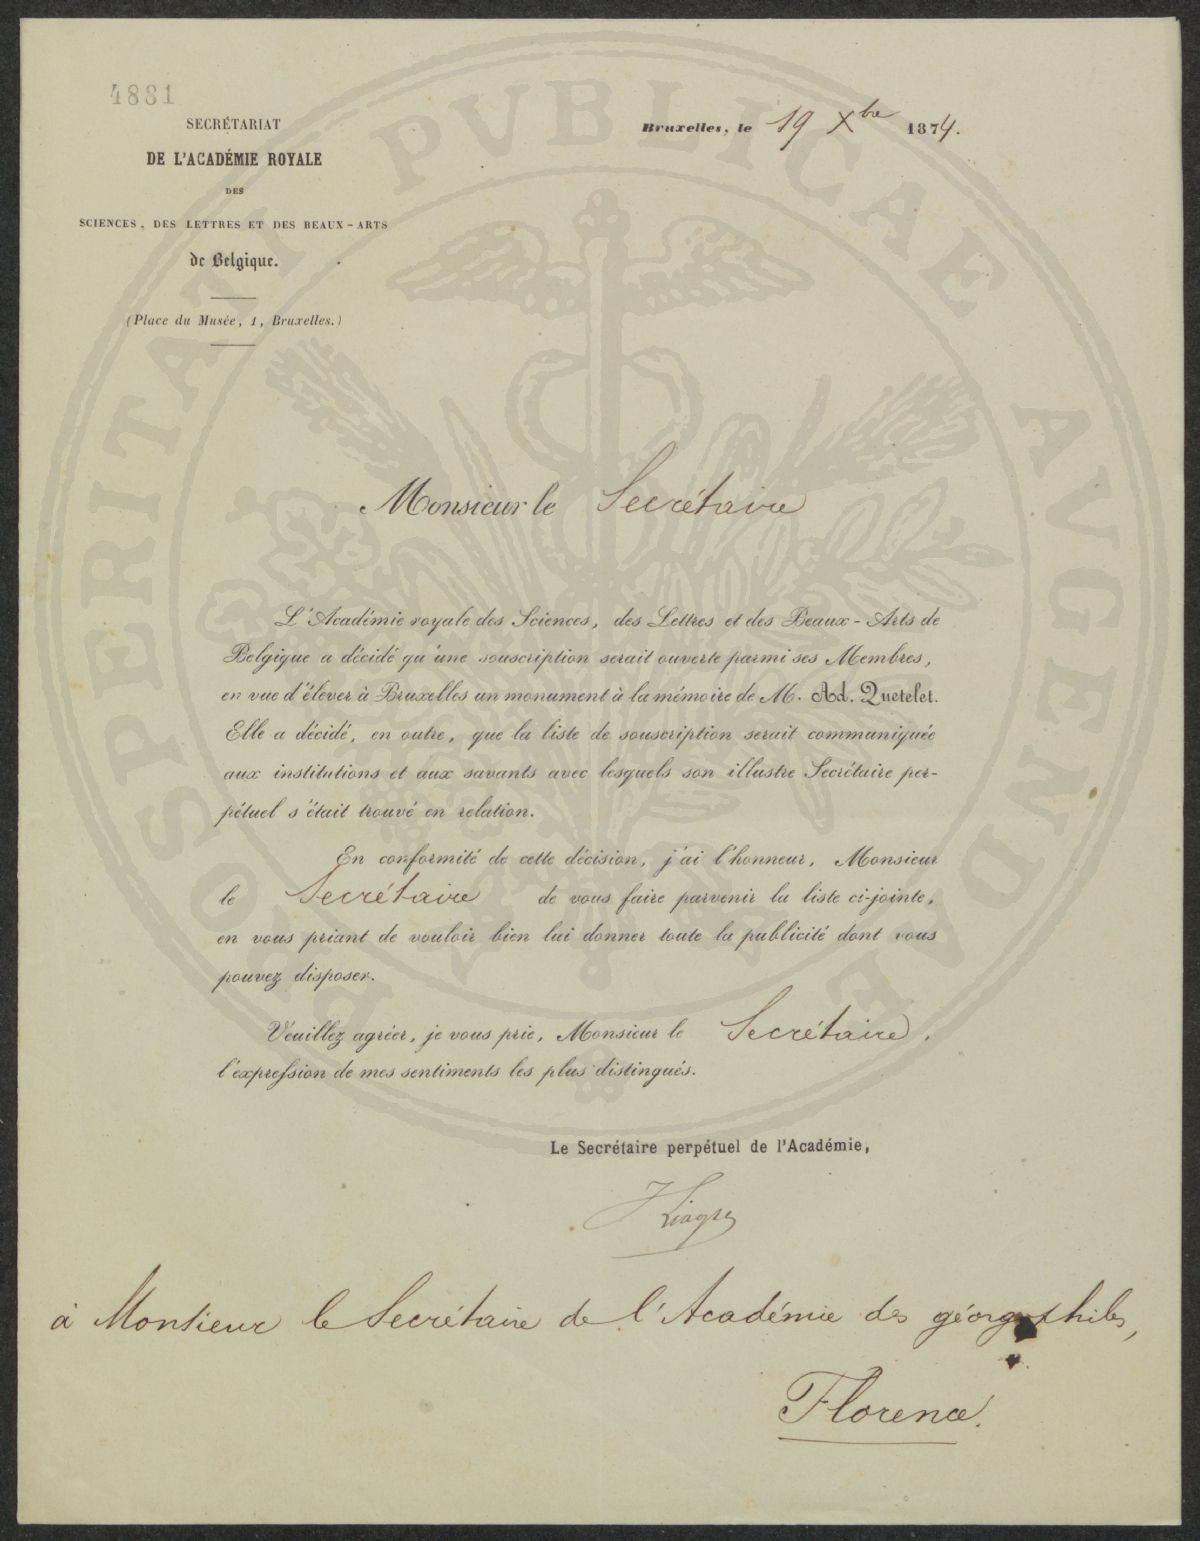 4881
SECRÉTARIAT
DE L'ACADÉMIE ROYALE
DES
SCIENCES, DES LETTRES ET DES BEAUX-ARTS
de Belgique.
(Place du Musée, 1, Bruxelles.)
Bruxelles, le 19 Xbre 1874.
Monsieur le Secrétaire
L'Académie royale des Sciences, des Lettres et des Beaux-Arts de
Belgique a décidé qu'une souscription serait ouverte parmi ses Membres,
en vue d'élever à Bruxelles un monument à la mémoire de M. Ad. Quetelet.
Elle a décidé, en outre, que la liste de souscription serait communiquée
aux institutions et aux savants avec lesquels son illustre Secrétaire per-
pétuel s'était trouvé en relation.
En conformité de cette décision, j'ai l'honneur, Monsieur
le Secrétaire de vous faire parvenir la liste ci-jointe,
en vous priant de vouloir bien lui donner toute la publicité dont vous
pouvez disposer.
Veuillez agréer, je vous prie, Monsieur le Secrétaire,
l'expression de mes sentiments les plus distingués.
Le Secrétaire perpétuel de l'Académie,
J Liagre
à Monsieur le Secrétaire de l'Académie des géorgophiles,
Florence.
PROSPERITATI PVBLICAE AVGENDAE